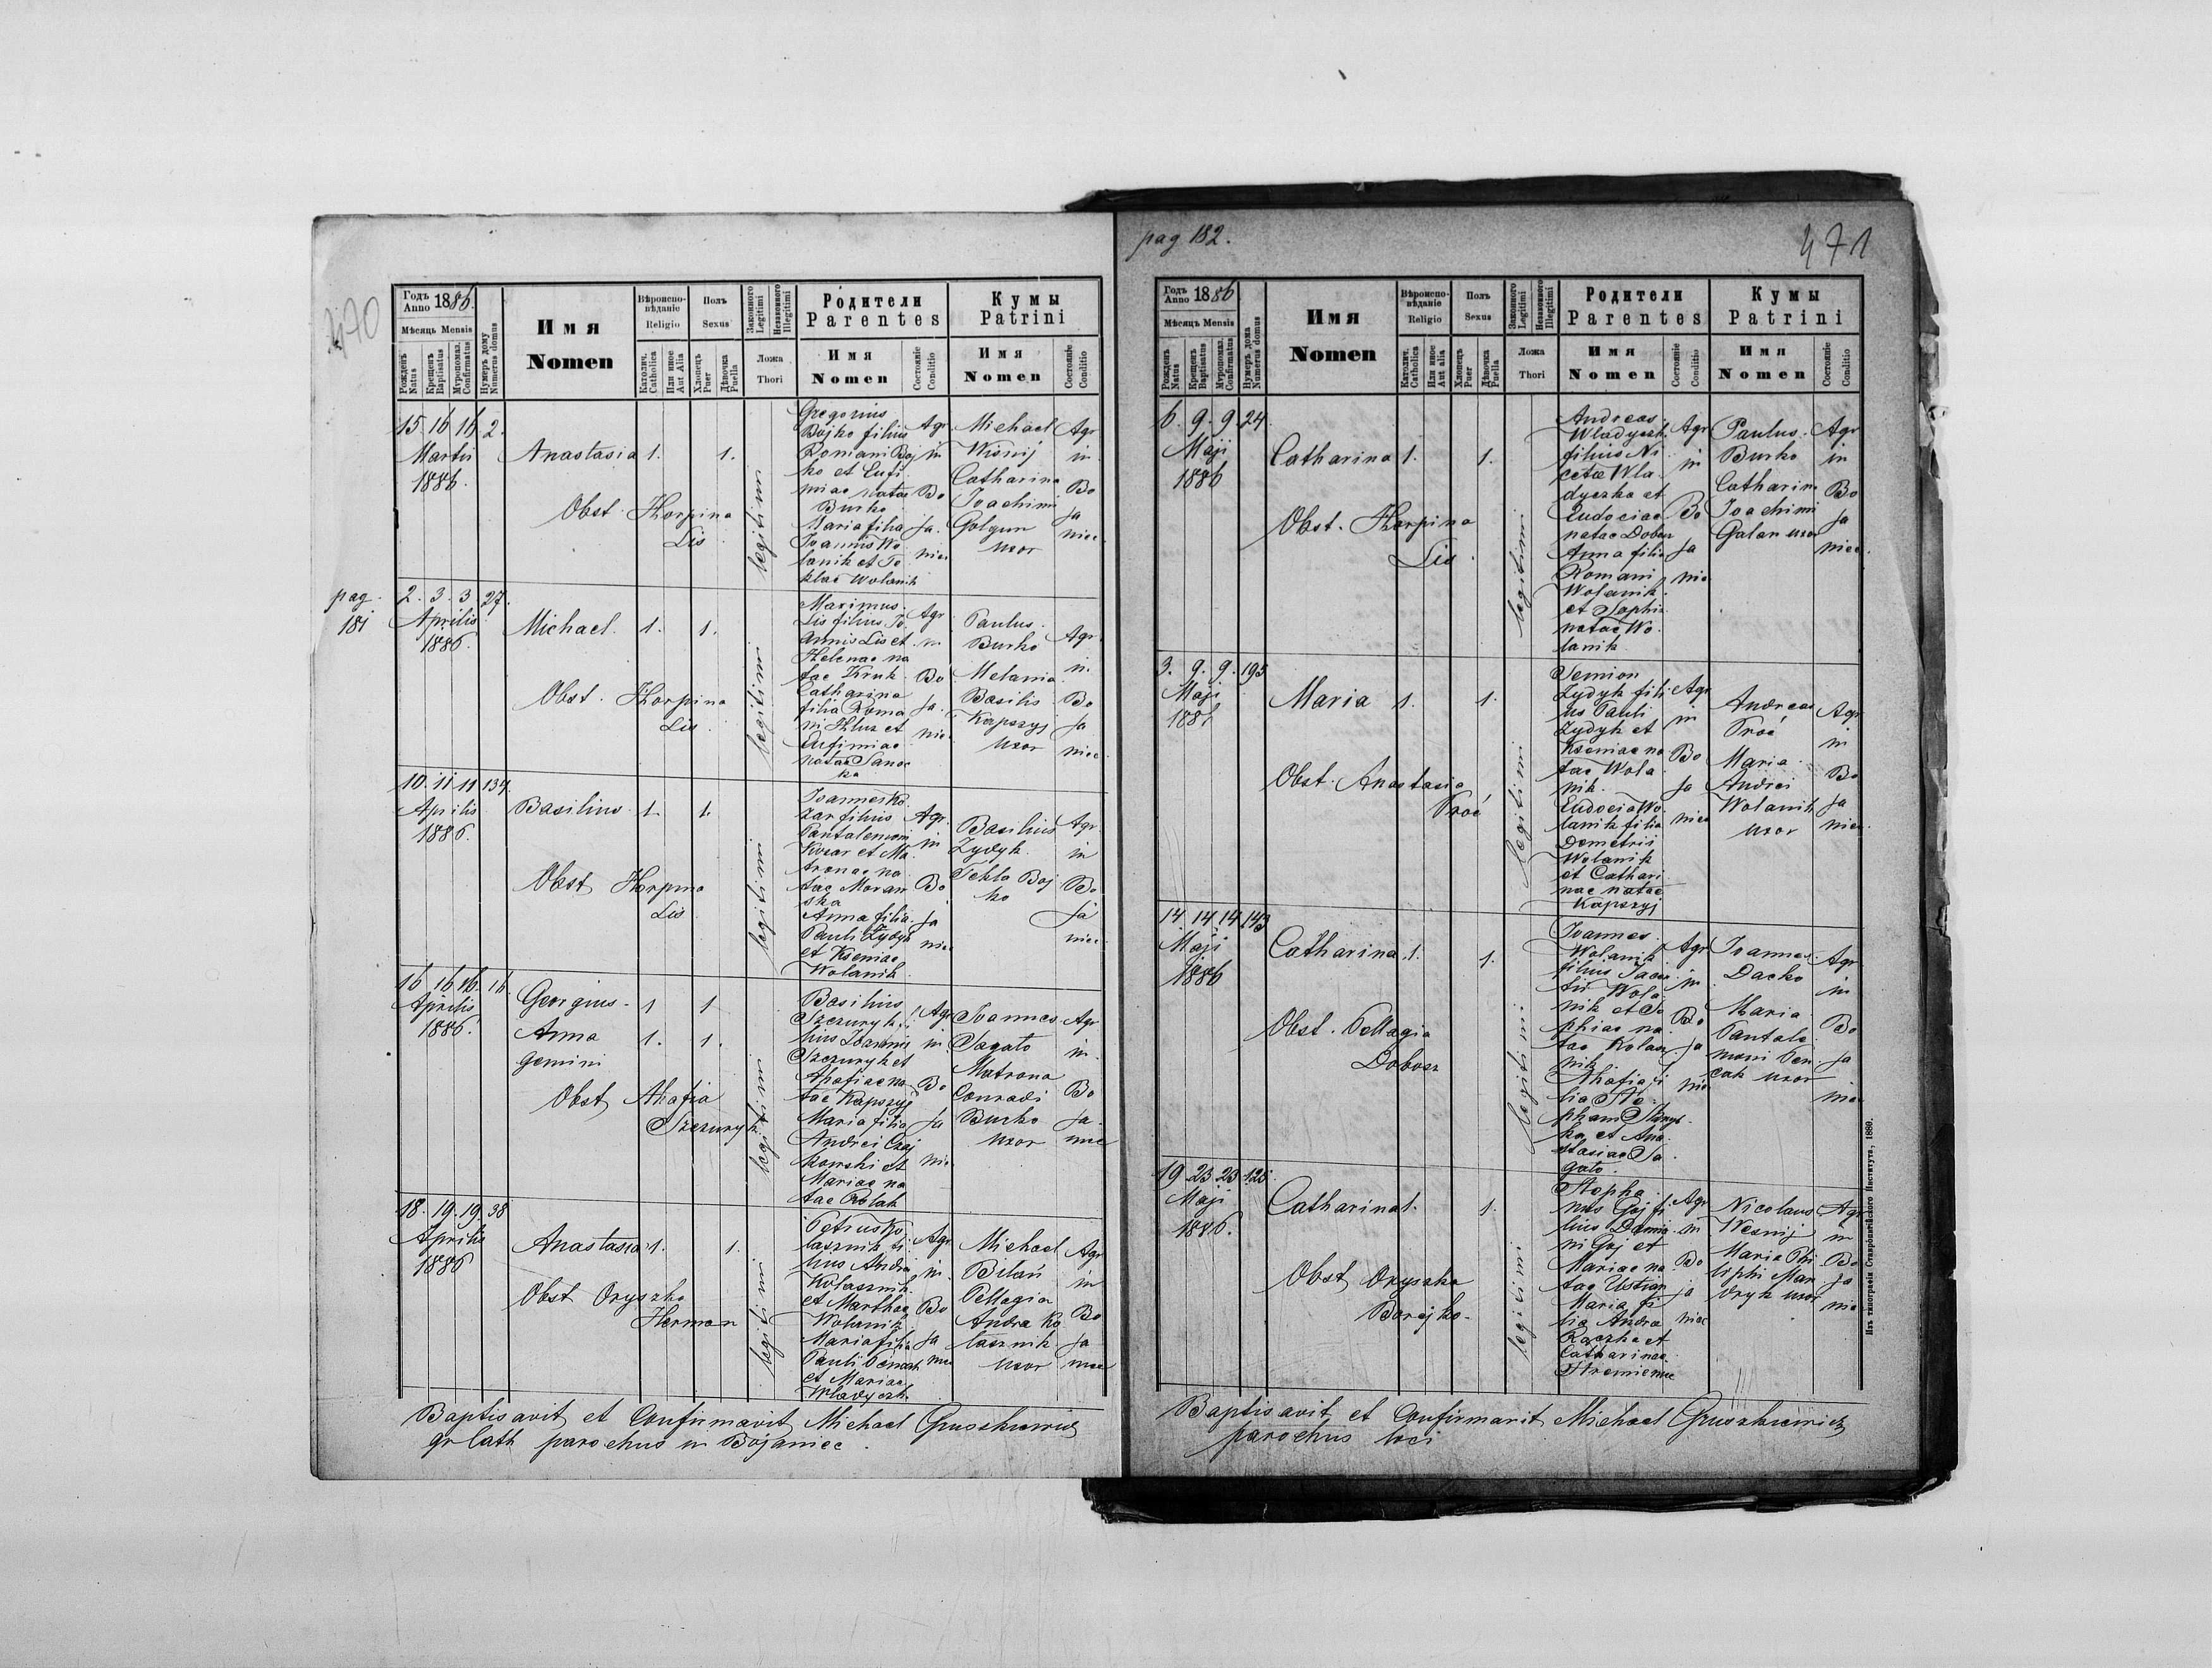 470
Годъ Anno 1886.
Мѣсяць Mensis
Рожденъ Natus
Крещенъ Baptisatus
Мѵропомаз. Confirmatus
Нумеръ дому Numerus domus
Имя Nomen
Вѣроиспо-вѣданіе Religio
Католич. Catholica
Или иное Aut Alia
Полъ Sexus
Хлопець Puer
Дѣвочка Puella
Законного Legitimi
Незаконного Illegitimi
Ложа Thori
Родители Parentes
Имя Nomen
Состояніе Conditio
Кумы Patrini
Имя Nomen
Состояніе Conditio
15. 16 16 2.
Martii
1886.
Anastasia 1. 1.
Obst. Horpina
Lis
legitimi
Gregorius
Bojko filius
Romani Boj
ko et Eufi
miae natae
Burko
Maria filia
Joannis Wo
lanik et Te
klae Wolanik
Agr
in
Bo
ja
niec
Michael
Wisnij
Catharina
Joachimi
Golgun
uxor
Agr
in
Bo
ja
niec
pag.
181
2. 3. 3 27.
Aprilis
1886.
Michael. 1. 1.
Obst. Horpina
Lis
legitimi
Maximus
Lis filius Jo
annis Lis et
Helenae na
tae Kruk
Catharina
filia Roma
ni Hluz et
Eufimiae
natae Sanoc
ka
Agr
in
Bo
ja.
niec
Paulus
Burko
Melania
Basilis
Kapszyj
uxor
Agr.
in
Bo
ja
niec
10. 11. 11 134.
Aprilis
1886.
Basilius 1. 1.
Obst Horpina
Lis
legitimi
Joannes Ko
zar filius
Pantalemoni
Kozar et Ma
tronae na
tae Moran
ska
Anna filia
Pauli Zydyk
et Kseniae
Wolanik
Agr.
in
Bo
ja
niec
Basilius
Zydyk
Tekla Boj
ko
Agr.
in
Bo
ja
niec
16 16 16. 16
Aprilis
1886.
Georgius 1 1
Anna 1. 1.
gemini
Obst Ahafia
Szczuryk
legitimi
Basilius
Szczuryk fi
lius Joannis
Szczuryk et
Ahafiae na
tae Kapszyj
Maria filia
Andrei Czaj
kowski et
Mariae na
tae Polak
Agr
in
Bo
ja
nie
Joannes
Sagato
Matrona
Conradi
Burko
uxor
Agr
in.
Bo
ja
niec
18. 19. 19. 38
Aprilis
1886
Anastasia 1. 1.
Obst Oryszka
Herman
legitimi
Petrus Ko
lasznik fi
lius Andrea
Kolasznik
et Marthae
Wolanik
Maria filia
Pauli Pencak
et Mariae
Wladyczk
Agr
in
Bo
ja
niec
Michael
Bilań
Pellagia
Andrea Ko
lasznik
uxor
Agr
in
Bo
ja
niec
Baptisavit et Confirmavit Michael Gruszkiewicz
gr cath parochus in Bojaniec.
pag 182.
471
Годъ Anno 1886
Мѣсяць Mensis
Рожденъ Natus
Крещенъ Baptisatus
Мѵропомаз. Confirmatus
Нумеръ дома Numerus domus
Имя Nomen
Вѣроиспо-вѣданіе Religio
Католич. Catholica
Или иное Aut Alia
Полъ Sexus
Хлопець Puer
Дѣвочка Puella
Законного Legitimi
Незаконного Illegitimi
Ложа Thori
Родители Parentes
Имя Nomen
Состояніе Conditio
Кумы Patrini
Имя Nomen
Состояніе Conditio
6. 9. 9. 24
Maji
1886
Catharina 1. 1.
Obst. Horpina
Lis
legitimi
Andreas
Wladyczk
filius Ni
cetae Wla
dyczka et
Eudociae
natae Dobosz
Anna filia
Romani
Wolanik
et Sophia
natae Wo
lanik
Agr
in
Bo
ja
nie
Paulus
Burko
Catharina
Joachimi
Galan uxor
Agr
in
Bo
ja
niec
3. 9. 9. 195
Maji
1886
Maria 1. 1.
Obst. Anastasia
Proć
legitimi
Semion
Zydyk fili
us Pauli
Zydyk et
Kseniae na
tae Wola
nik.
Eudocia Wo
lanik filia
Demetrii
Wolanik
et Cathari
nae natae
Kapszyj
Agr
in
Bo
ja
niec
Andreas
Proć
Maria
Andrei
Wolanik
uxor
Agr
in
Bo
ja
niec
14 14 14 143
Maji
1886
Catharina 1. 1.
Obst. Pellagia
Dobosz
legitimi
Joannes
Wolanik
nik et So
phiae na
tae Kolasz
nik
Ahafia fi
lia Ste
phani
et Ana
stasiae Sa
gato.
Agr
in
Bo
ja
nie
Joannes
Dacko
Maria
Pantale
moni Pen
cak uxor
Agr
in
Bo
ja
niec
19 23 23 125
Maji
1886.
Catharina 1. 1.
Obst Oryszka
Borejko
legitimi
Stepha
nus Goj fi
lius Damia
ni Goj et
Mariae na
tae Ustian
Maria fi
lia Andrea
Raczka et
Catharinae
Agr
in
Bo
ja
niec
Nicolaus
Wesnij
Maria Phi
liphi Man
dryk uxor
Agr
in
Bo
ja
nie
Baptisavit et Confirmavit Michael Gruszkiewicz
parochus loci
Изъ типографіи Ставропигійского Института, 1880.